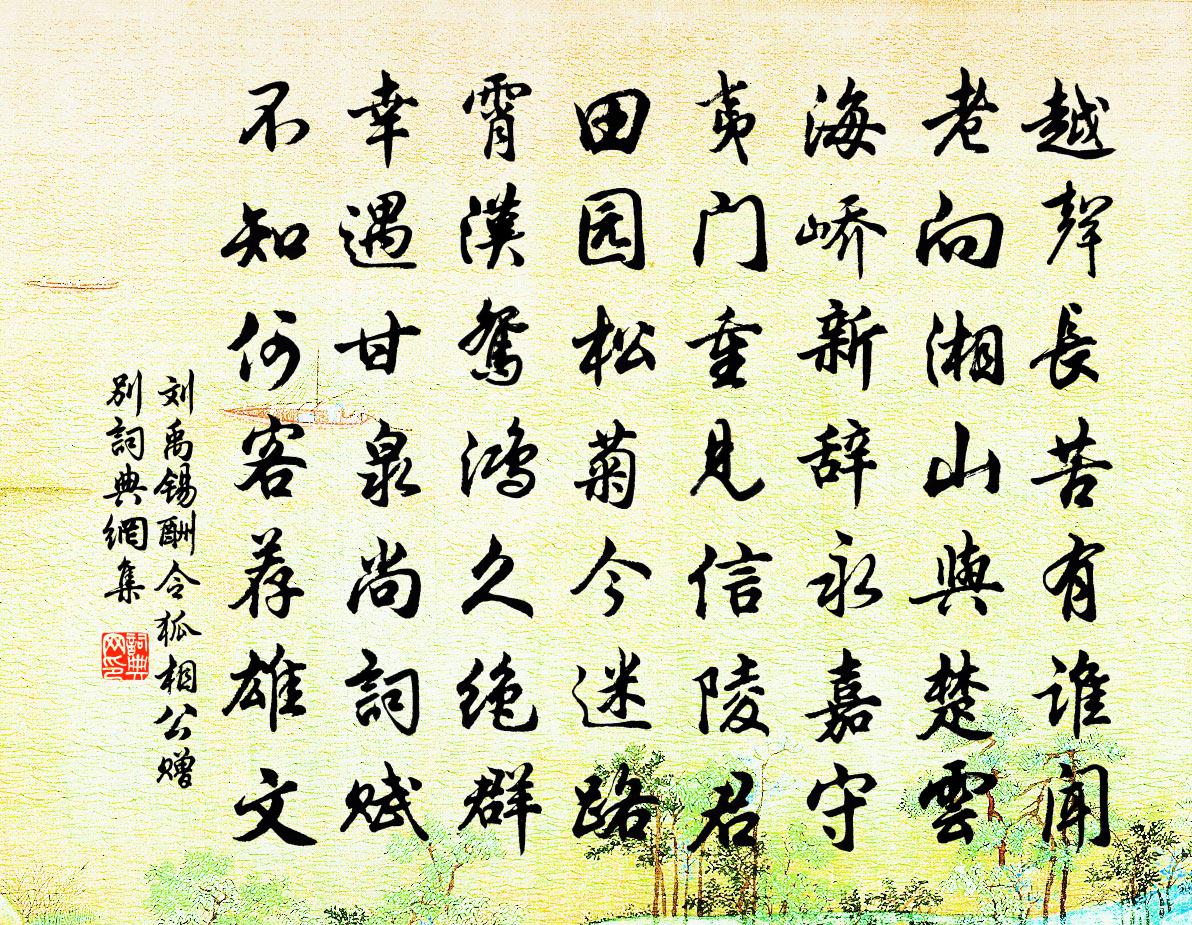 越聲長苦有谁聞
老向湘山與楚雲
海峤新辞永嘉守
夷门重見信陵君
田园松菊今迷路
霄漢鸳鸿久绝群
幸遇甘泉尚詞赋
不知何客荐雄文
刘禹锡酬令狐相公赠
别詞典網集
詞典
网印